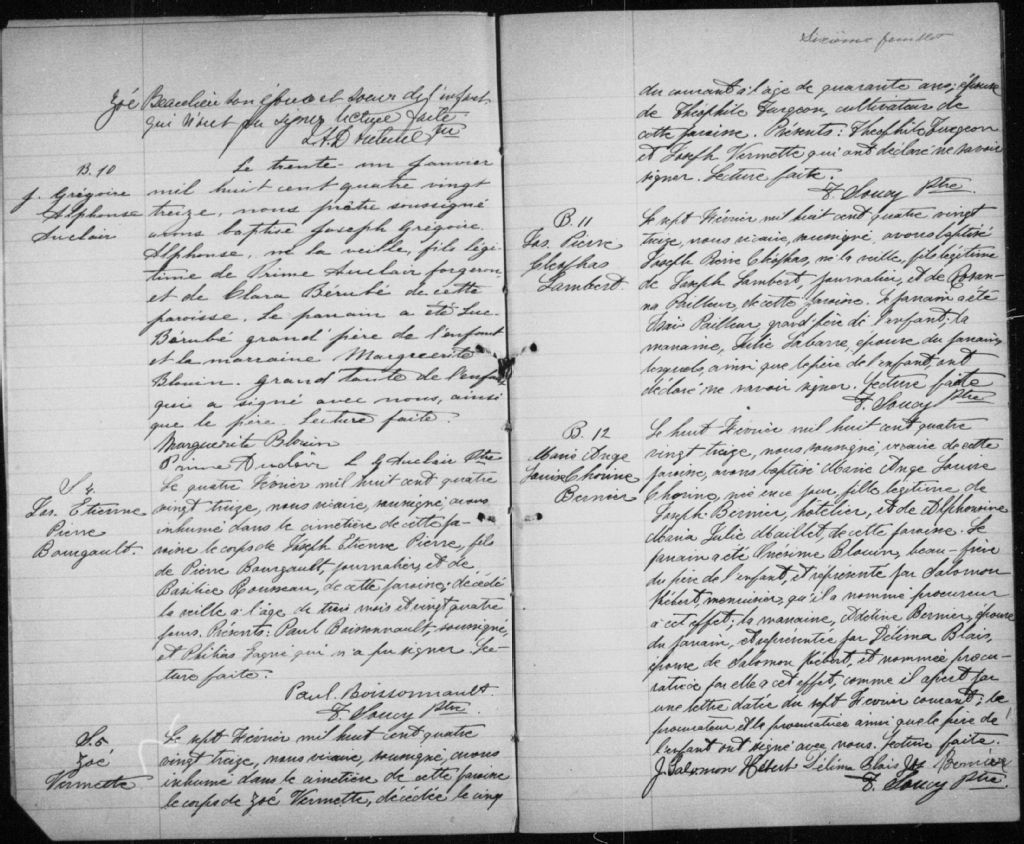 Zoé Beaulieu son épouse et soeur de l'enfant
qui n'ont pu signer lecture faite
Ptre
B. 10
J. Grégoire
Alphonse
Auclair
Le trente-un Janvier
mil huit cent quatre vingt
treize, nous prêtre soussigné
avons baptisé Joseph Grégoire
Alphonse, né la veille, fils légi-
time de Prime Auclair forgeron
et de Clara Bérubé de cette
paroisse. Le parrain a été Luc
Bérubé grand père de l'enfant
et la marraine Marguerite
Blouin, grand tante de l'enfant
qui a signé avec nous, ainsi
que le père. Lecture faite.
Marguerite Blouin
Prime Auclair L. G Auclair Ptre
S 4.
Jos. Etienne
Pierre
Bourgault.
Le quatre Février mil huit cent quatre
vingt treize, nous vicaire, soussigné, avons
inhumé dans le cimetière de cette pa-
roisse le corps de Joseph Etienne Pierre, fils
de Pierre Bourgault, journalier, et de
Basilice Rousseau, de cette paroisse; décédé
la veille à l'âge de trois mois et vingt quatre
jours. Présents: Paul Boissonnault, soussigné,
et Philias Gagné qui n'a pu signer. Lec-
ture faite.
Paul. Boissonnault.
F. Soucy Ptre.
S. 5
Zoé
Vermette
Le sept Février mil huit cent quatre
vingt treize, nous vicaire, soussigné, avons
inhumé dans le cimetière de cette paroisse
le corps de Zoé Vermette, décédée le cinq
Sixième feuillet
du courant à l'âge de quarante ans; épouse
de Théophile Turgeon, cultivateur de
cette paroisse. Présents: Théophile Turgeon
et Joseph Vermette qui ont déclaré ne savoir
signer. Lecture faite.
F. Soucy Ptre.
B. 11
Jos. Pierre
Cléophas
Lambert.
Le sept Février mil huit cent quatre vingt
treize, nous vicaire, soussigné, avons baptisé
Joseph Pierre Cléophas, né la veille, fils légitime
de Joseph Lambert, journalier, et de Rosan-
na Pailleur, de cette paroisse. Le parrain a été
Pailleur, grand père de l'enfant; la
marraine, Julie Labarre, épouse du parrain,
lesquels, ainsi que le père de l'enfant, ont
déclaré ne savoir signer. Lecture faite
F. Soucy Ptre
B. 12
Marie Ange
Louise
Bernier
Le huit Février mil huit cent quatre
vingt treize, nous, soussigné, vicaire de cette
paroisse, avons baptisé Marie Ange Louise
née ce jour, fille légitime de
Joseph Bernier, hotelier, et de Alphonsine
Maria Julie Maillet, de cette paroisse. Le
parrain a été Onésime Blouin, beau-frère
du père de l'enfant, et représenté par Salomon
Hébert, menuisier, qu'il a nommé procureur
à cet effet; la marraine, Adeline Bernier, épouse
du parrain, et représentée par Délima Blais,
épouse de Salomon Hébert, et nommée procu-
ratrice par elle à cet effet, comme il apert par
une lettre datée du sept Février courant; le
procureur et la procuratrice ainsi que le père de
l'enfant ont signé avec nous. Lecture faite.
J. Salomon Hébert Délima Blais Jos Bernier
F. Soucy Ptre.